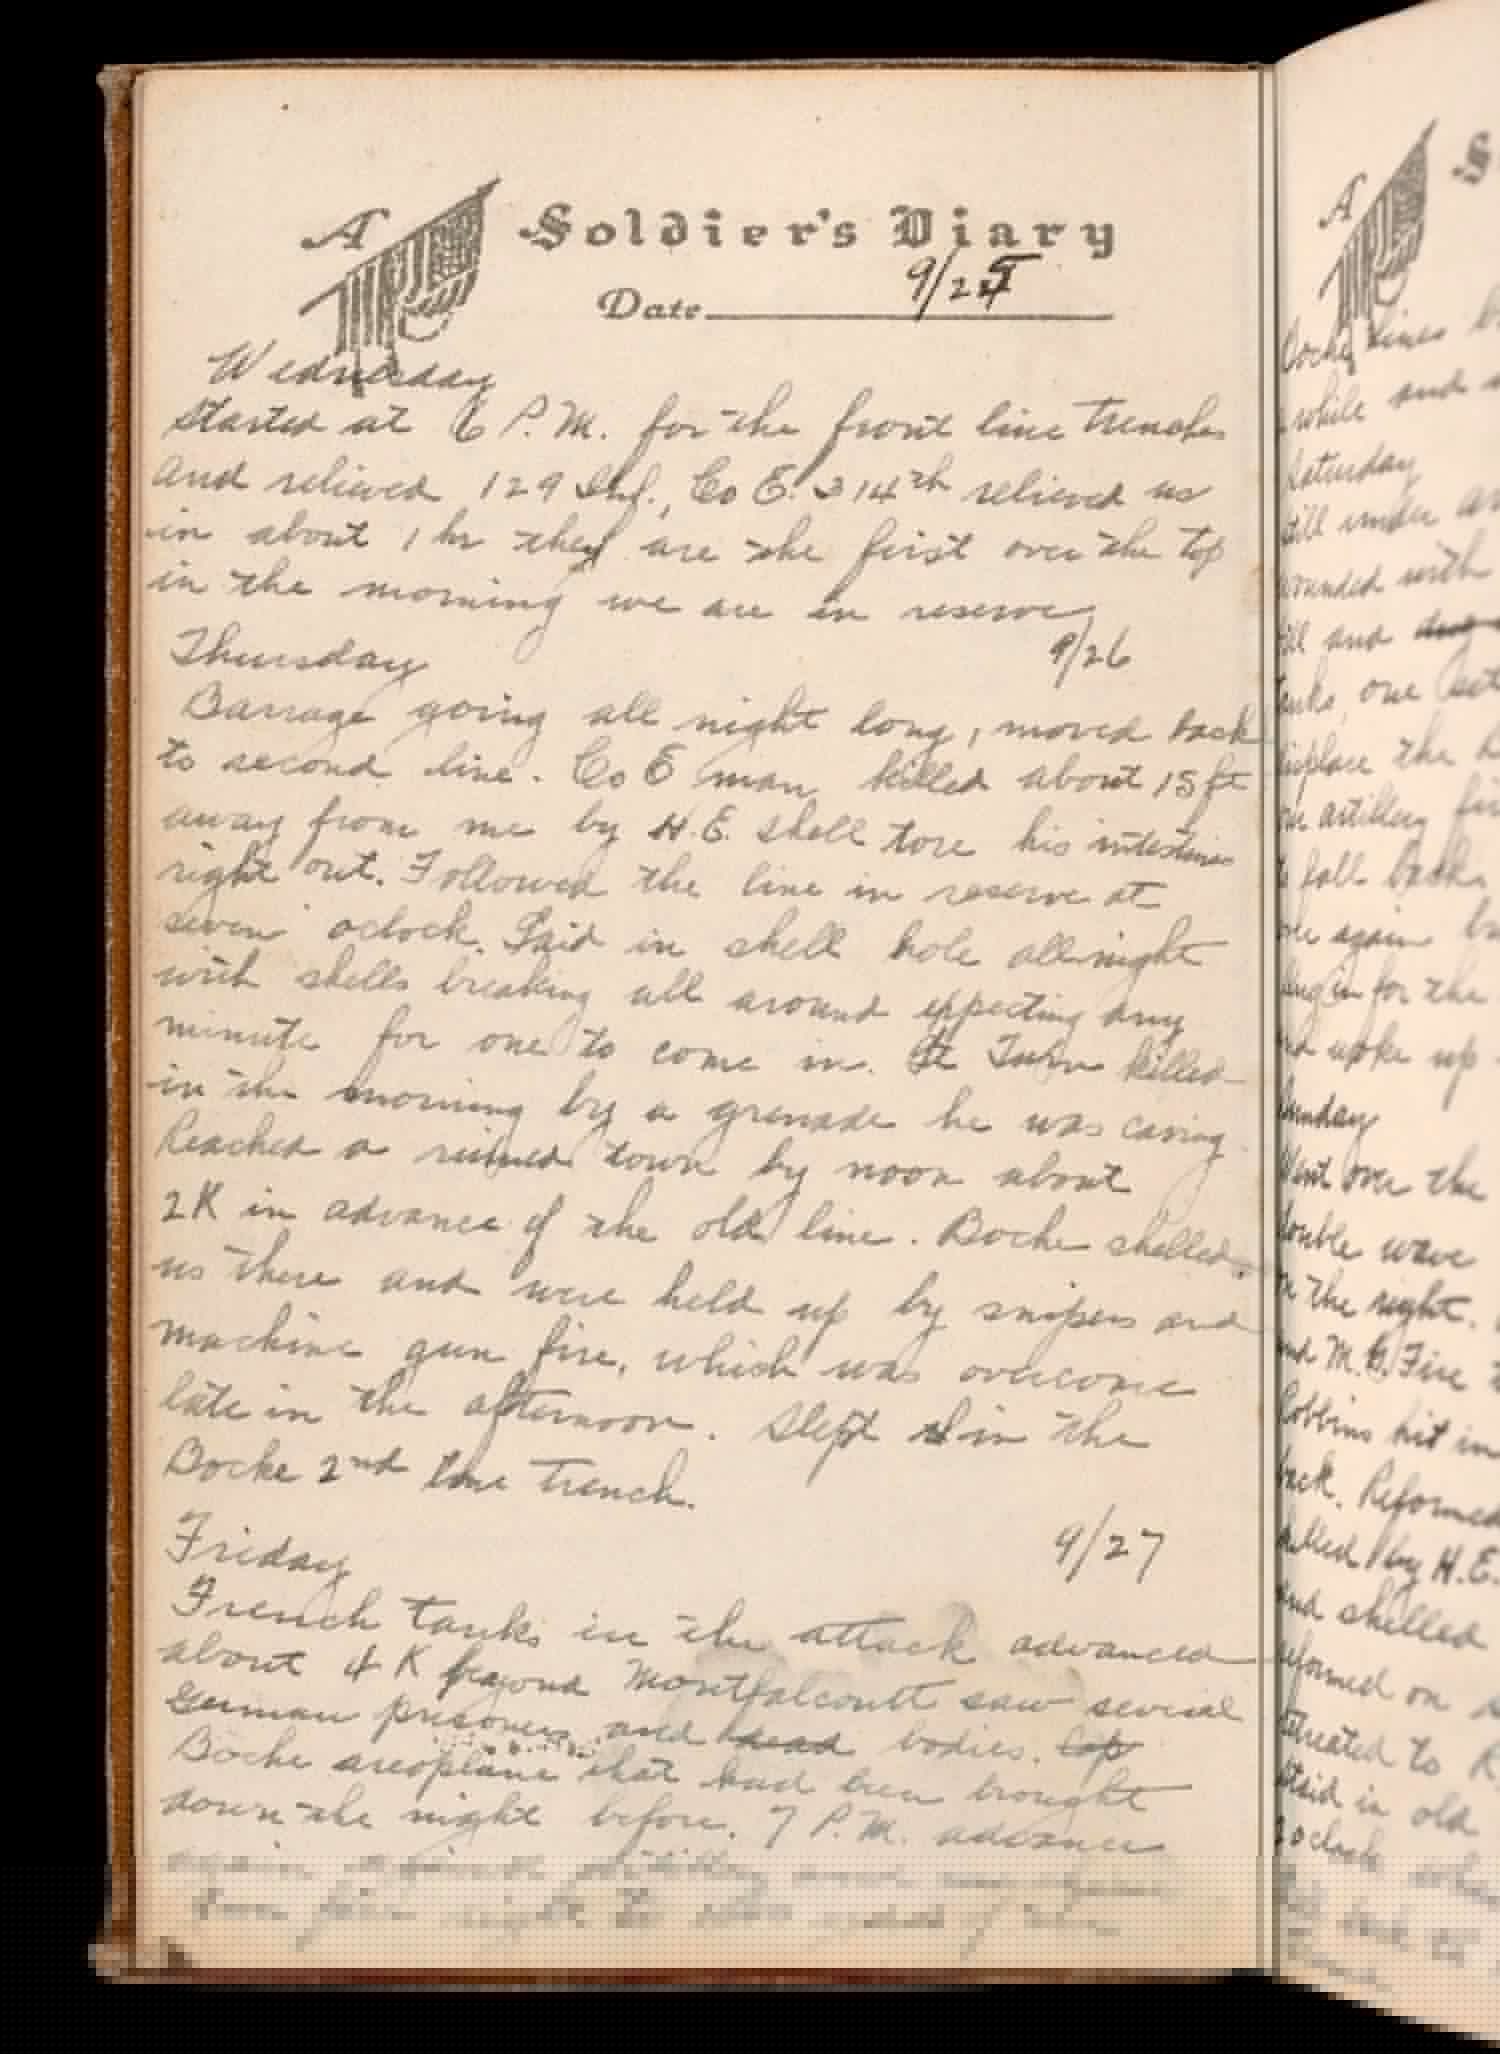 A Soldier's Diary
Date 9/25
Wednesday
Started at 6 P.M. for the front line trenches
and relieved 129 Inf., Co E. 314th relieved us
in about 1 hr they are the first over the top
in the morning we are in reserve
Thursday 9/26
Barrage going all night long, moved back
to second line. Co E man killed about 15 ft
away from me by H.E. shell tore his intestines
right out. Followed the line in reserve at
seven oclock. Laid in shell hole all night
with shells breaking all around expecting any
minute for one to come in. killed
in the morning by a grenade he was caring.
Reached a ruined town by noon about
2 K in advance of the old line. Boche shelled
us there and were held up by snipers and
machine gun fire, which was overcome
late in the afternoon. Slept in the
Boche 2nd line trench.
Friday 9/27
French tanks in the attack advanced
about 4 K beyond Montfalcoutt saw several
German prisoners and dead bodies.
Boche areoplane that had been brought
down the night before. 7 P.M. advance
again and
A
Boche lines
while and
Saturday
still under
wounded with
and
tanks, one
the
our artillery
to fall back
again
for the
woke up
Sunday
Went over the
double wave
on the right.
and M.G. Fire
Robbins hit in
back. Reformed
killed by H.E.
and shelled
reformed on
retreated to
Staid in old
oclock